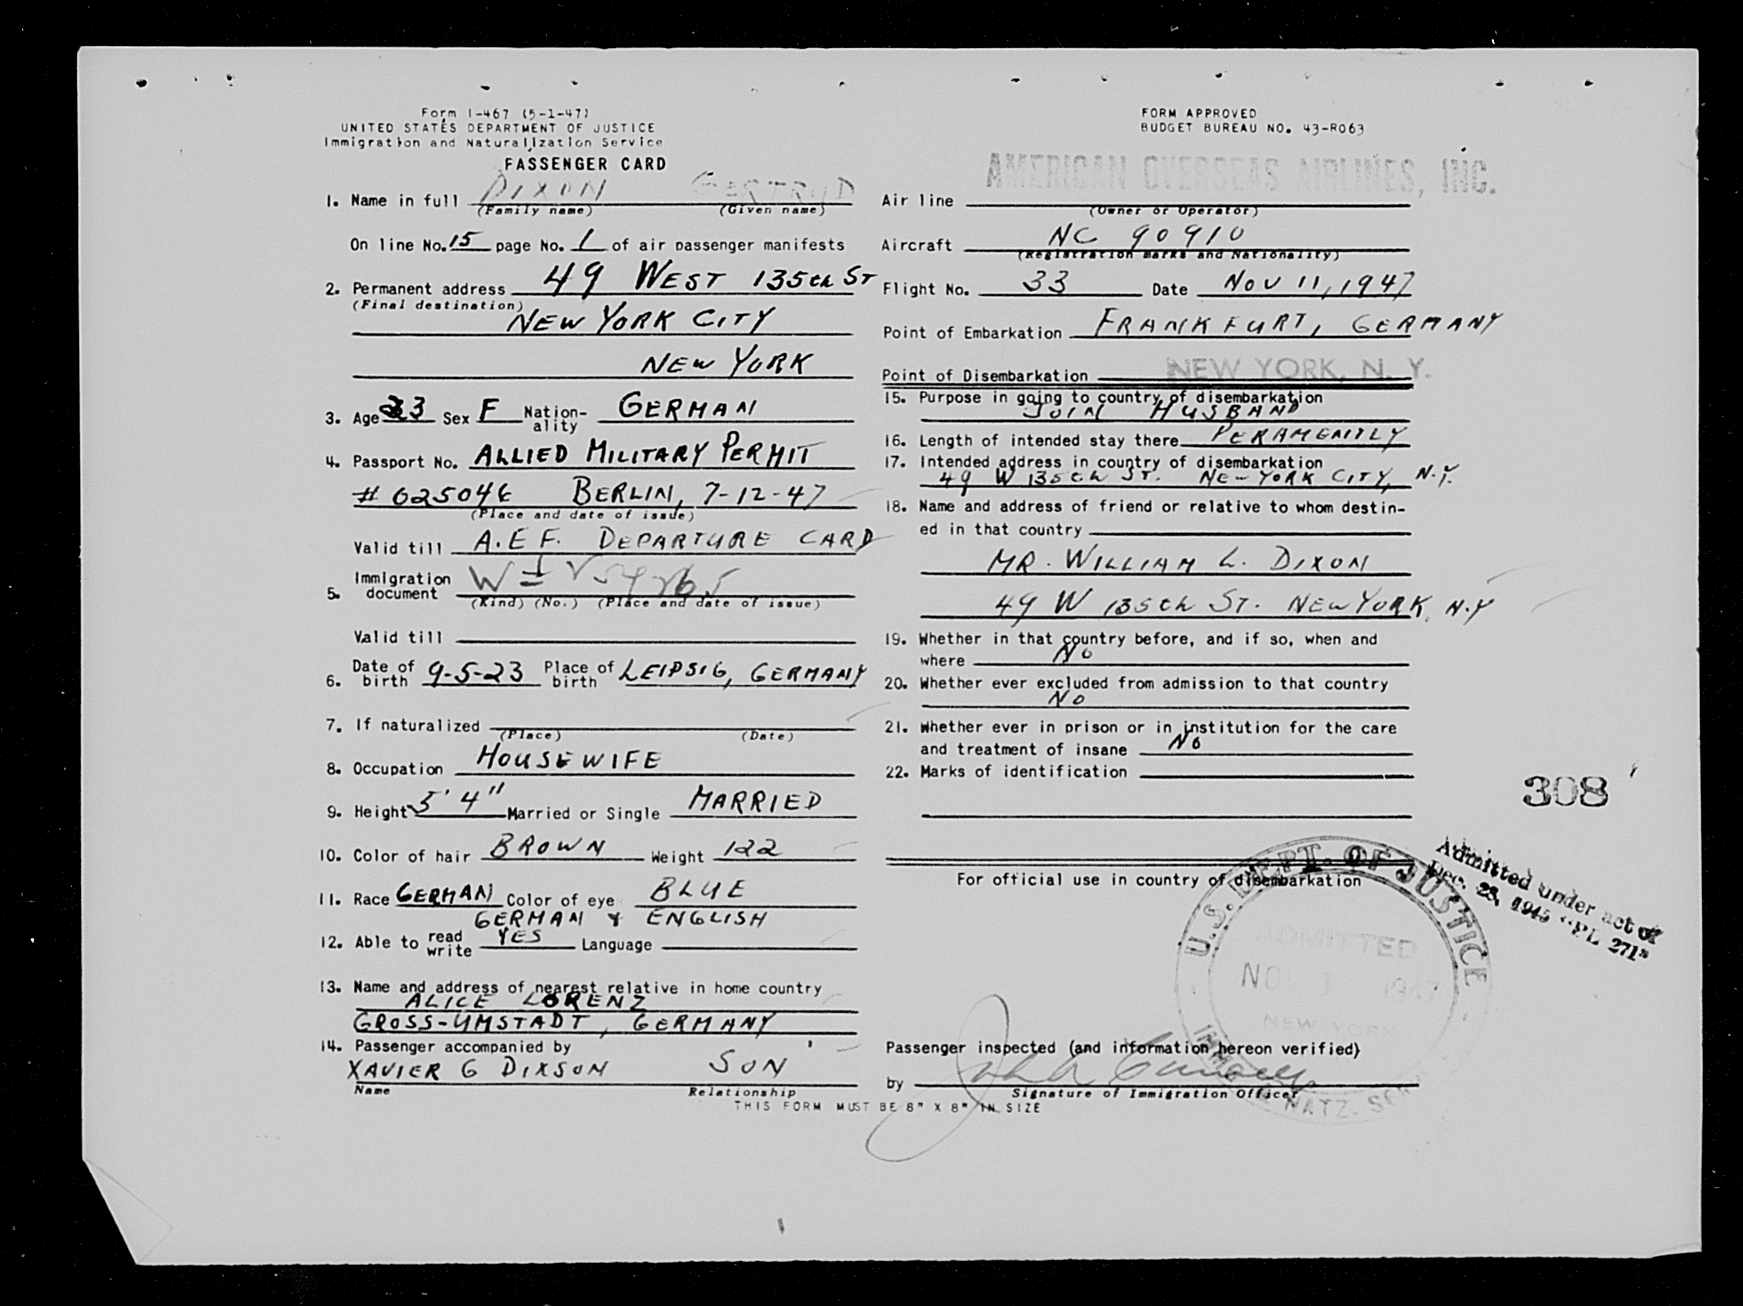 Form I-467 (5-1-47)
UNITED STATES DEPARTMENT OF JUSTICE
Immigration and Naturalization Service
PASSENGER CARD
1. Name in full DIXON GERTRUD
(Family name) (Given name)
On line No. 15 page No. 1 of air passenger manifests
2. Permanent address 49 WEST 135th ST
(Final destination)
NEW YORK CITY
NEW YORK
3. Age 23 Sex F Nation-ality GERMAN
4. Passport No. ALLIED MILITARY PERMIT
# 025046 BERLIN, 7-12-47
(Place and date of issue)
Valid till A.E.F. DEPARTURE CARD
5. Immigration document
(Kind) (No.) (Place and date of issue)
Valid till
6. Date of birth 9-5-23 Place of birth LEIPSIG, GERMANY
7. If naturalized
(Place) (Date)
8. Occupation HOUSEWIFE
9. Height 5' 4" Married or Single MARRIED
10. Color of hair BROWN Weight 122
11. Race GERMAN Color of eye BLUE
GERMAN & ENGLISH
12. Able to read write YES Language
13. Name and address of nearest relative in home country
ALICE LORENZ
GROSS-UMSTADT, GERMANY
14. Passenger accompanied by
XAVIER G DIXSON SON
Name Relationship
THIS FORM MUST BE 8" X 8" IN SIZE
FORM APPROVED
BUDGET BUREAU NO. 43-R063
AMERICAN OVERSEAS AIRLINES, INC.
Air line
(Owner or Operator)
Aircraft NC 90910
(Registration marks and Nationality)
Flight No. 33 Date NOV 11, 1947
Point of Embarkation FRANKFURT, GERMANY
Point of Disembarkation NEW YORK, N. Y.
15. Purpose in going to country of disembarkation
JOIN HUSBAND
16. Length of intended stay there PERAMENTLY
17. Intended address in country of disembarkation
49 W 135th ST. NEW YORK CITY, N.Y.
18. Name and address of friend or relative to whom destin-
ed in that country
MR. WILLIAM L. DIXON
49 W 135th ST. NEW YORK, N.Y
19. Whether in that country before, and if so, when and
where NO
20. Whether ever excluded from admission to that country
NO
21. Whether ever in prison or in institution for the care
and treatment of insane NO
22. Marks of identification
308
Admitted under act of
Dec. 28, 1945 "PL 271"
For official use in country of disembarkation
U.S. DEPT. OF JUSTICE
ADMITTED
NEW YORK
Passenger inspected (and information hereon verified)
by
Signature of Immigration Officer